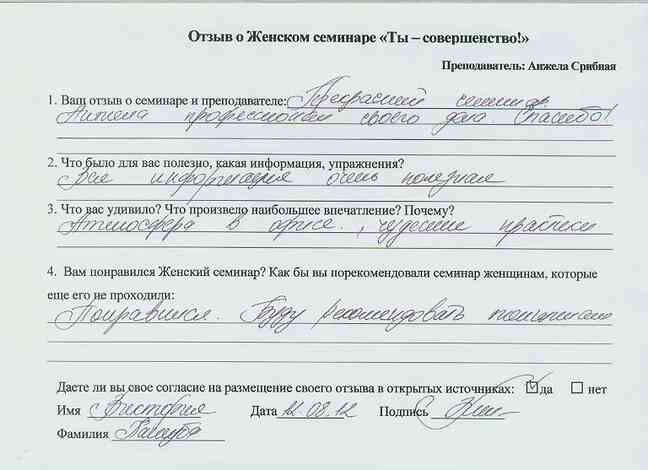 Отзыв о Женском семинаре «Ты – совершенство!»
Преподаватель: Анжела Срибная
1. Ваш отзыв о семинаре и преподавателе: Прекрасный семинар.
Анжела профессионал своего дела. Спасибо!
2. Что было для вас полезно, какая информация, упражнения?
Вся информация очень полезная
3. Что вас удивило? Что произвело наибольшее впечатление? Почему?
Атмосфера в офисе, чудесные практики
4. Вам понравился Женский семинар? Как бы вы порекомендовали семинар женщинам, которые
еще его не проходили:
Понравился. Буду рекомендовать
Даете ли вы свое согласие на размещение своего отзыва в открытых источниках: да нет
Имя Виктория Дата 12.08.12 Подпись
Фамилия